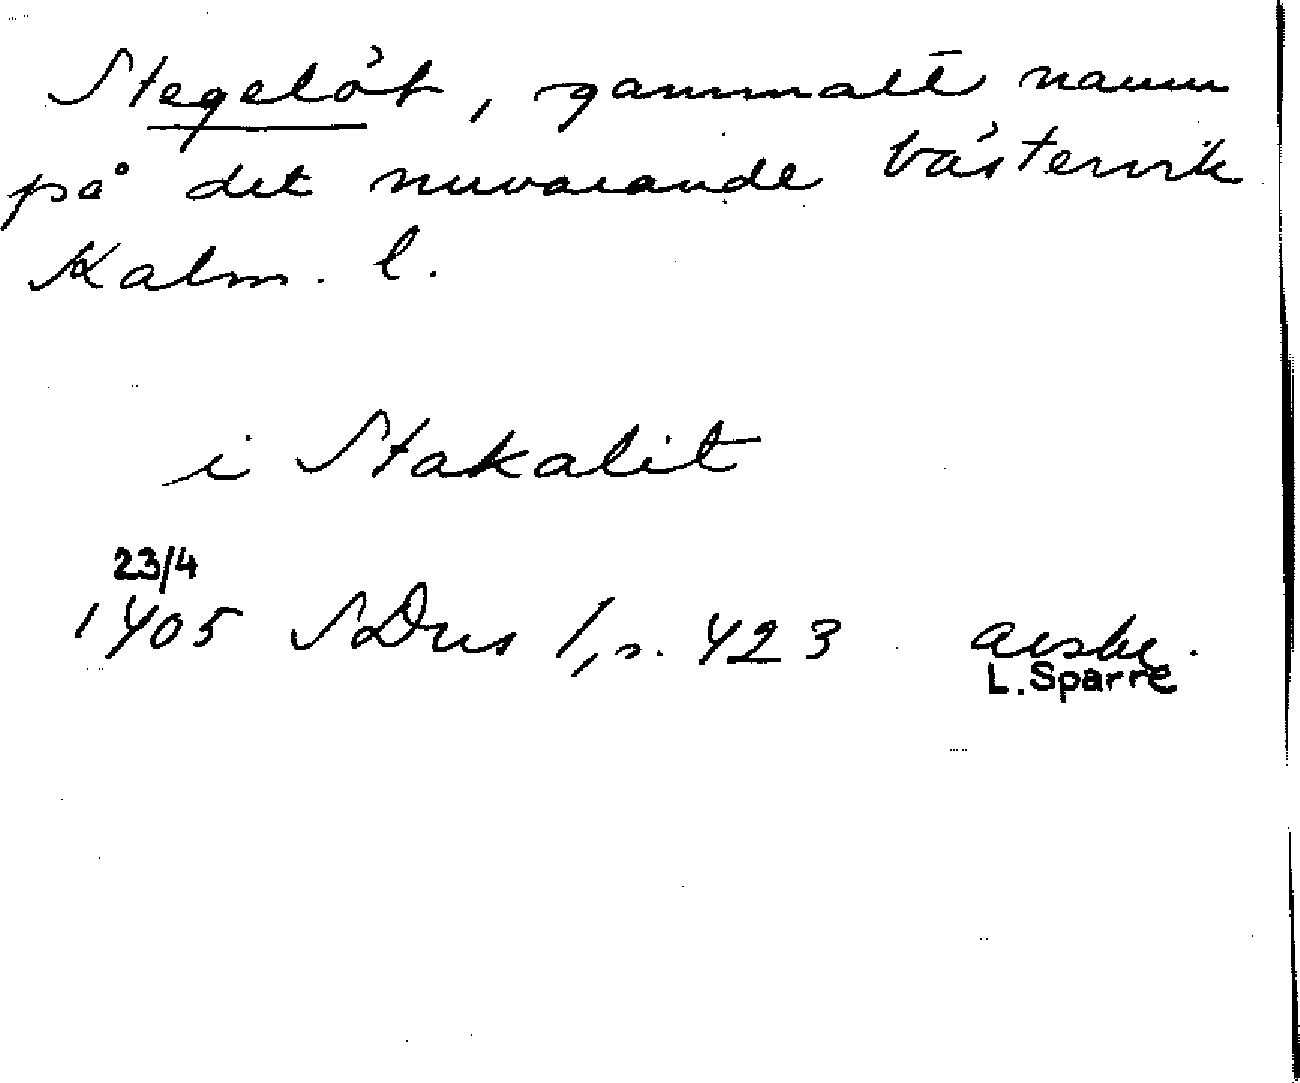 Stegelöt, gammalt namn
på det nuvarande Västervik
Kalm. l.
i Stakalit
23/4
1405 SDns 1, s. 423 avskr.
L. Sparre